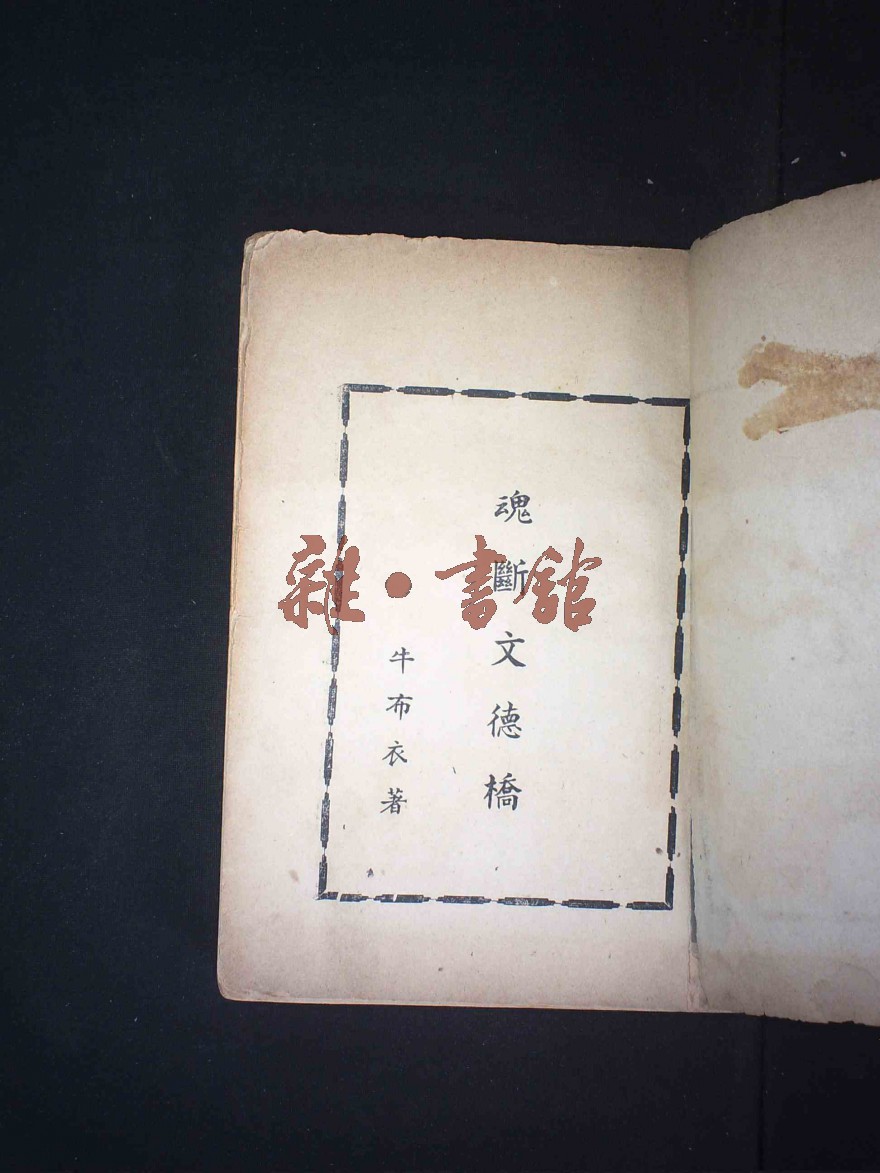 魂斷文德橋
牛布衣著
雜·書館